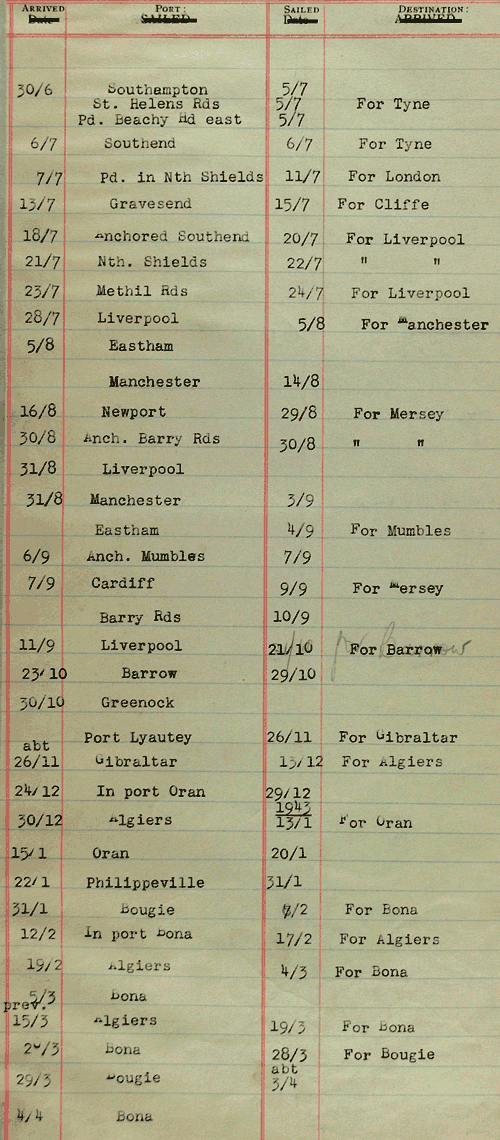 ARRIVED PORT: SAILED DESTINATION:
Date SAILED Date ARRIVED
30/6 Southampton 5/7
St. Helens Rds 5/7 For Tyne
Pd. Beachy Hd east 5/7
6/7 Southend 6/7 For Tyne
7/7 Pd. in Nth Shields 11/7 For London
13/7 Gravesend 15/7 For Cliffe
18/7 Anchored Southend 20/7 For Liverpool
21/7 Nth. Shields 22/7 " "
23/7 Methil Rds 24/7 For Liverpool
28/7 Liverpool 5/8 For Manchester
5/8 Eastham
Manchester 14/8
16/8 Newport 29/8 For Mersey
30/8 Anch. Barry Rds 30/8 " "
31/8 Liverpool
31/8 Manchester 3/9
Eastham 4/9 For Mumbles
6/9 Anch. Mumbles 7/9
7/9 Cardiff 9/9 For Mersey
Barry Rds 10/9
11/9 Liverpool 21/10 For Barrow
23/10 Barrow 29/10
30/10 Greenock
Port Lyautey 26/11 For Gibraltar
abt
26/11 Gibraltar 13/12 For Algiers
24/12 In port Oran 29/12
1943
30/12 Algiers 13/1 For Oran
15/1 Oran 20/1
22/1 Philippeville 31/1
31/1 Bougie /2 For Bona
12/2 In port Bona 17/2 For Algiers
19/2 Algiers 4/3 For Bona
5/3 Bona
prev.
15/3 Algiers 19/3 For Bona
/3 Bona 28/3 For Bougie
abt
29/3 Bougie 3/4
4/4 Bona